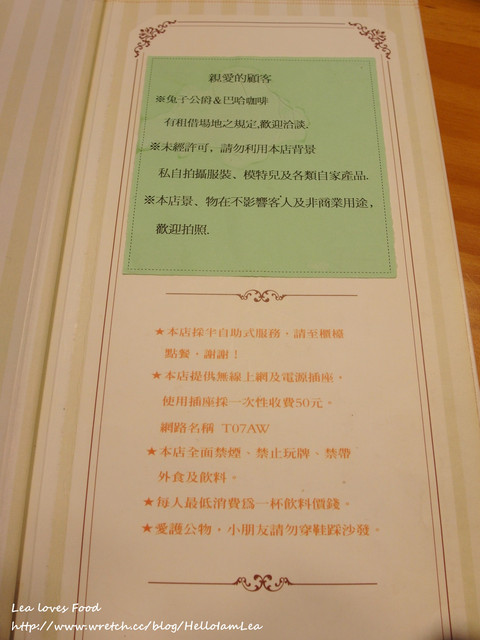 親愛的顧客
※兔子公爵&巴哈咖啡
有租借場地之規定,歡迎洽談.
※未經許可，請勿利用本店背景
私自拍攝服裝、模特兒及各類自家產品.
※本店景、物在不影響客人及非商業用途，
歡迎拍照.
★本店採半自助式服務，請至櫃檯
點餐，謝謝！
★本店提供無線上網及電源插座，
使用插座採一次性收費50元。
網路名稱 T07AW
★本店全面禁煙、禁止玩牌、禁帶
外食及飲料。
★每人最低消費為一杯飲料價錢。
★愛護公物，小朋友請勿穿鞋踩沙發。
Lea loves Food
http://www.wretch.cc/blog/HelloIamLea